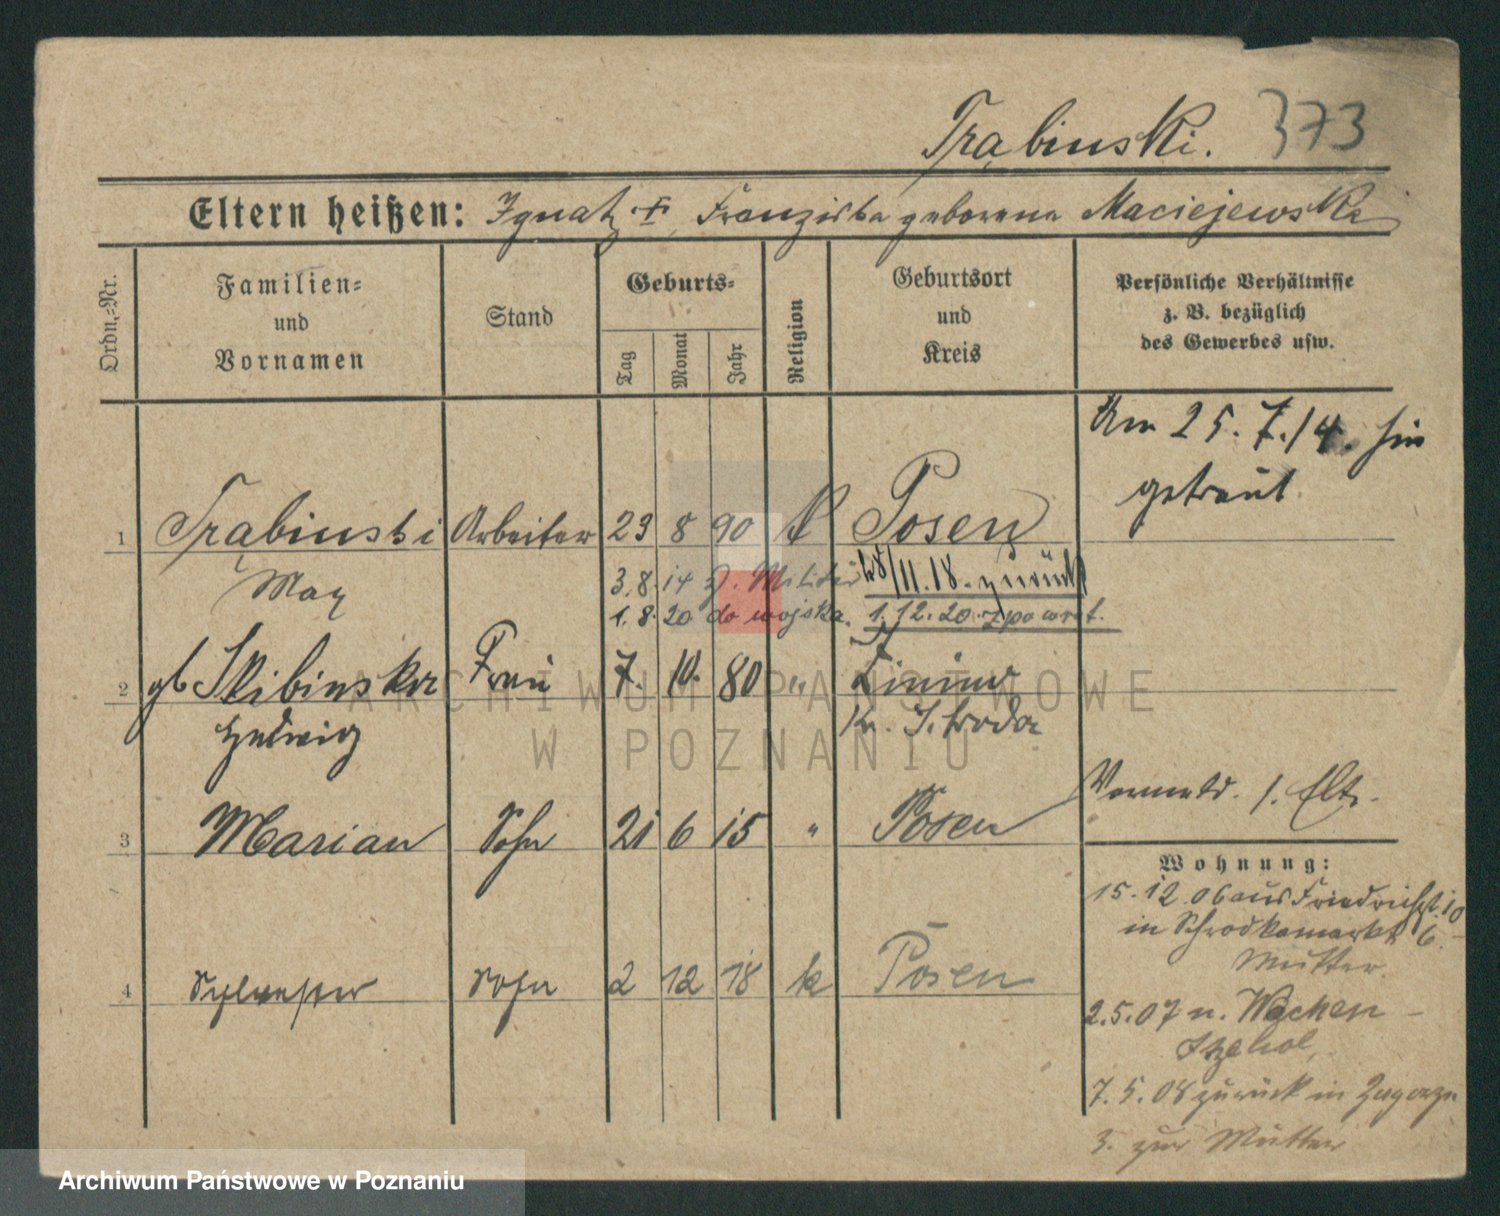 Trąbinski. 373
Eltern heißen: Ignatz +, Franziska geborene Maciejewska
Ordn.-Nr.
Familien-
und
Vornamen
Stand
Geburts-
Tag
Monat
Jahr
Religion
Geburtsort
und
Kreis
Persönliche Verhältnisse
z. B. bezüglich
des Gewerbes usw.
Am 25.7.14. hier
getraut
1 Trąbinski Arbeiter 23 8 90 k Posen
Max
3.8.14 z. Militär 28/11.18. zurück
1.8.20 do wojska. 1.12.20. z powrot.
2 gb Skibinska Frau 7. 10. 80 "
Hedwig Kr. Schroda
3 Marian Sohn 21 6 15 " Posen
4 Sylvester Sohn 2 12 18 k Posen
Wohnung:
15.12.06 aus Friedrichst. 10
in Schrodkamarkt 6.
Mutter.
2.5.07 n.
7.5.08 zurück in Zagorze
3. zur Mutter
ARCHIWUM PAŃSTWOWE
W POZNANIU
Archiwum Państwowe w Poznaniu